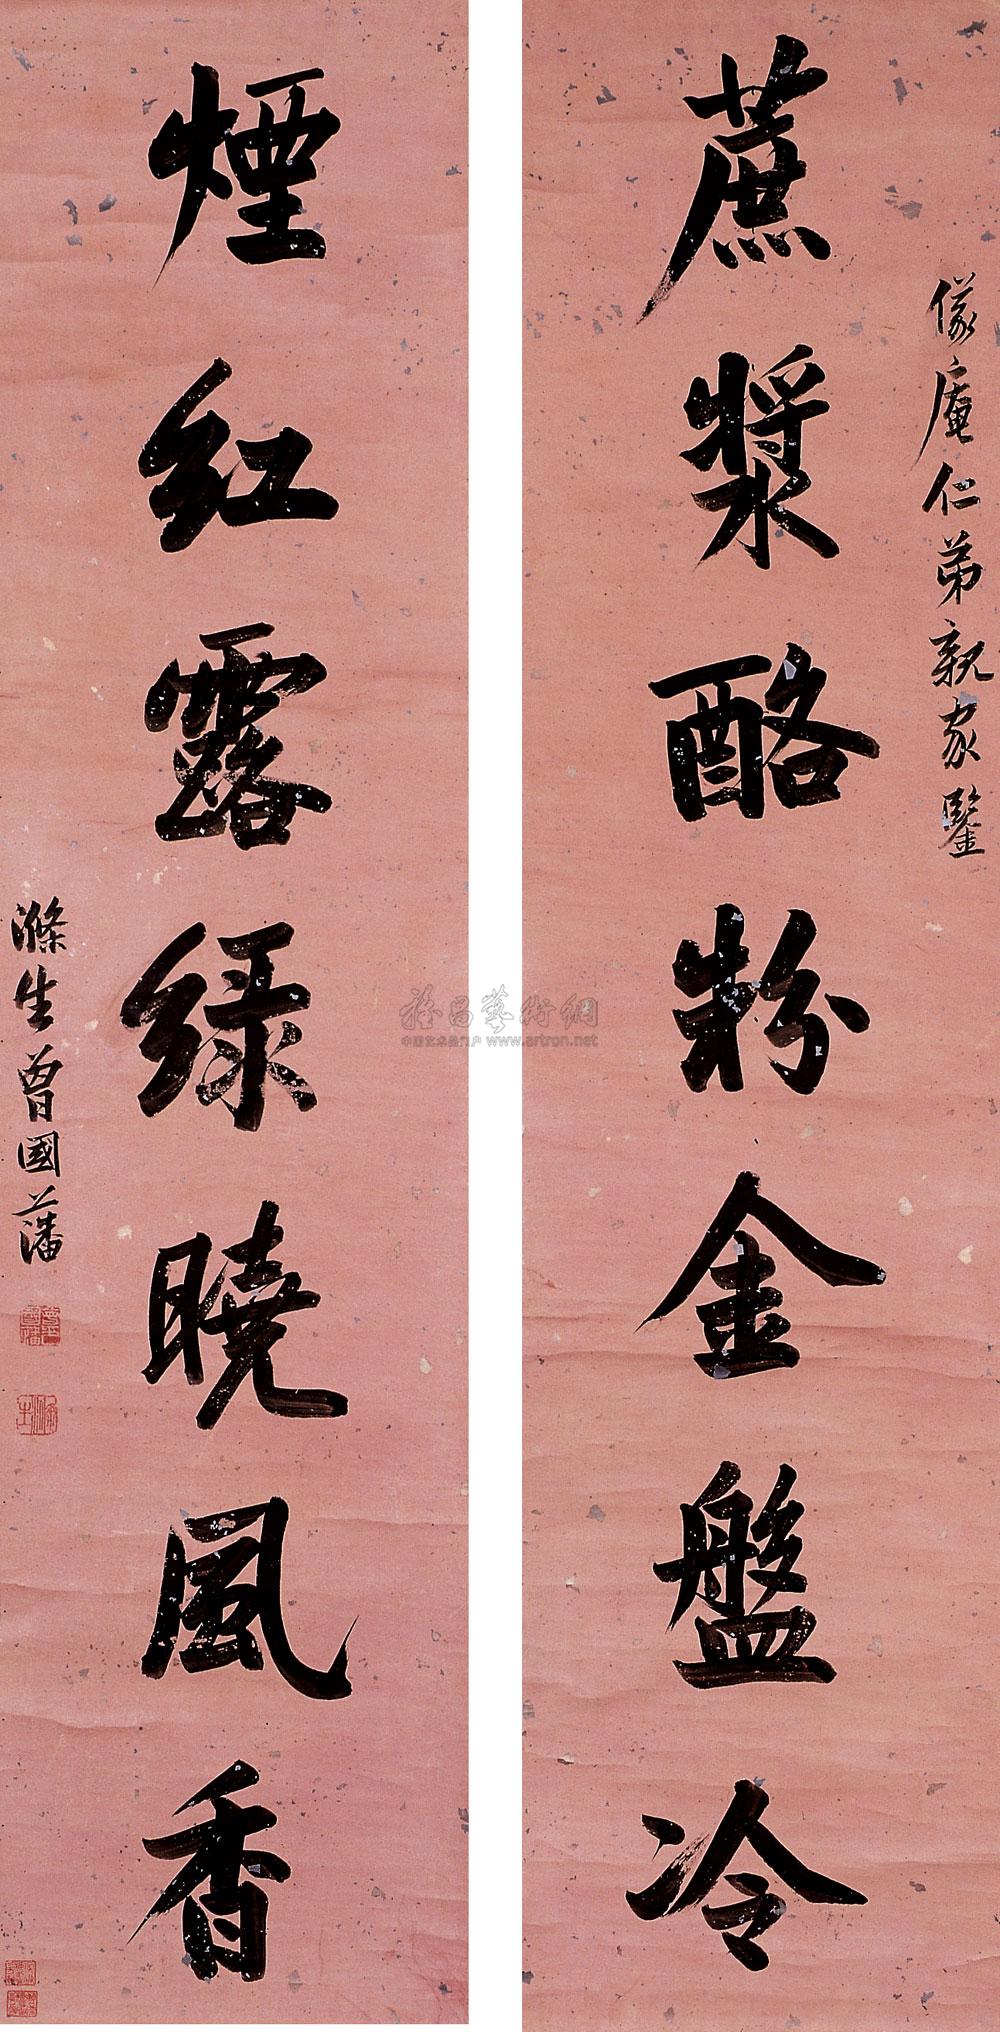 儀庵仁弟親家鑒
蔗漿酪粉金盤冷
煙紅露綠曉風香
滌生曾國藩
中国艺术品门户 www.artron.net